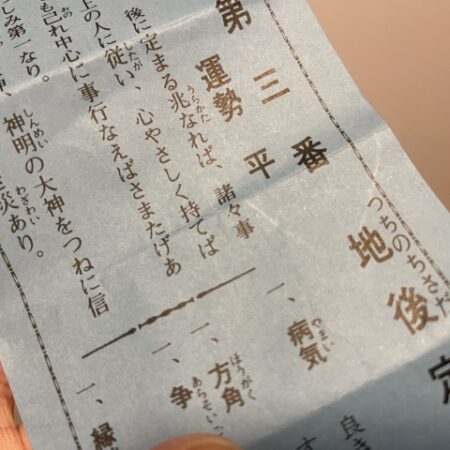 つちのちさだ
地後定
第三番
運勢 平
後に定まる兆なれば、諸々事
うらかた
上の人に従い、心やさしく持てば
したが
も己れ中心に事行なえばさまたげあ
おの
しみ第一なり。
神明の大神をつねに信
しんめい
災あり。
わざわい
一、病気
やまい
良き
一、方角
ほうがく
一、争
あらそい
一、縁